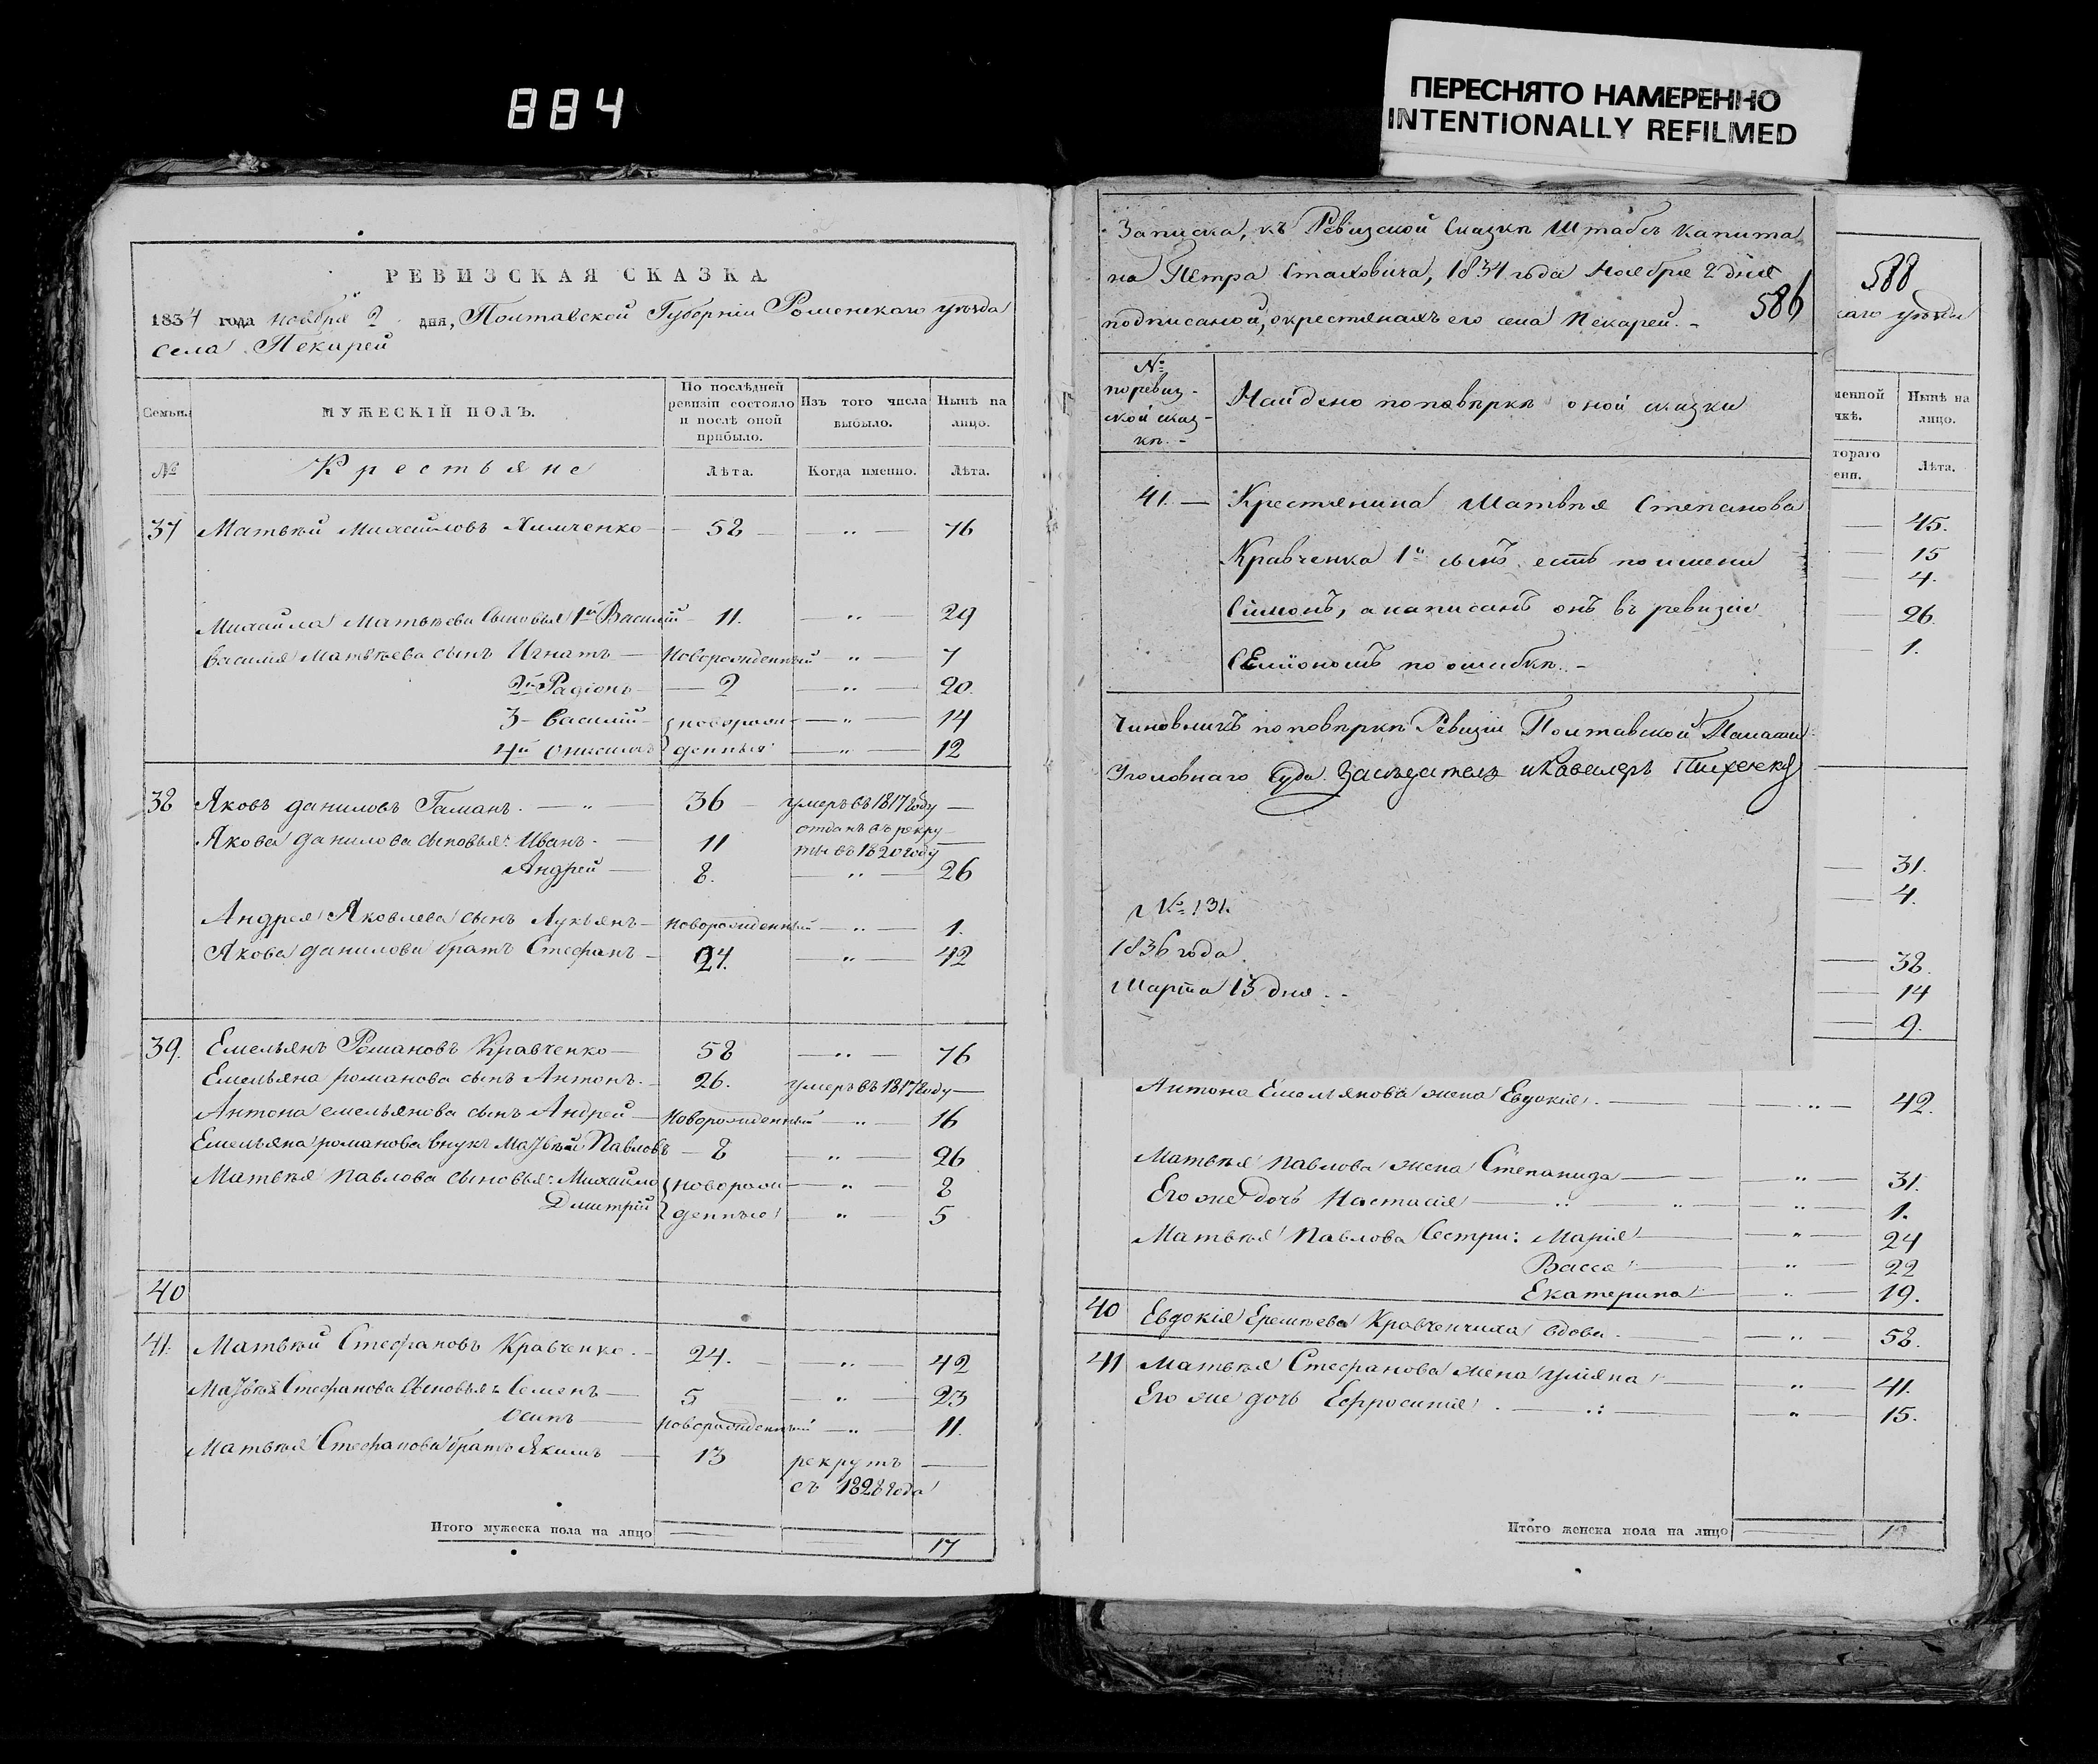 884
ПЕРЕСНЯТО НАМЕРЕННО
INTENTIONALLY REFILMED
РЕВИЗСКАЯ СКАЗКА
1834 года ноября 2 дня, Полтавской Губерніи Роменскаго уѣзда
села Пекарей
Семьи.
МУЖЕСКІЙ ПОЛЪ.
По послѣдней ревизіи состояло и послѣ оной прибыло.
Изъ того числа выбыло.
Нынѣ на лицо.
№
Крестьяне
Лѣта.
Когда именно.
Лѣта.
37 Матвѣй Михайловъ Химченко — 58 — „ — 76
Михайла Матвѣева сыновья 1й Василій 11. — „ — 29
Василія Матвѣева сынъ Игнатъ — новорожденный — „ — 7
2й Радіонъ — 2 — „ — 20.
3 — Василій — новорож — „ — 14
4й Онисимъ денныя — „ — 12
38 Яковъ Даниловъ Гаманъ. — „ — 36 — умеръ въ 1817 году —
Якова Данилова сыновья: Иванъ. — 11 отданъ въ рекру
ты въ 1820 году —
Андрей — 8. — „ — 26
Андрея Яковлева сынъ Лукьянъ — новорожденный — „ — 1.
Якова Данилова братъ Стефанъ — 24. — „ — 42
39. Емельянъ Романовъ Кравченко — 58 — „ — 76
Емельяна Романова сынъ Антонъ. — 26. умеръ въ 1817 году —
Антона Емельянова сынъ Андрей — новорожденный — „ — 16
Емельяна Романова внукъ Матвѣй Павловъ — 8 — „ — 26
Матвѣя Павлова сыновья: Михайло новорож — „ — 8
Дмитрій денные — „ — 5
40
41. Матвѣй Стефановъ Кравченко. — 24. — „ — 42
Матвѣя Стефанова сыновья: Семенъ — 5 — „ — 23
Осипъ — новорожденный — „ — 11.
Матвѣя Стефанова братъ Якимъ — 13 рекрутъ —
съ 1828 года
Итого мужеска пола на лицо — — 17
Записка, къ Ревизской Сказкѣ Штабсъ Капита
на Петра Стаховича, 1834 года Ноября 2 дня
подписаной, о крестянахъ его села Пекарей. -
586
№ по ревиз-
ской сказ-
кѣ. -
Найдено по повѣркѣ оной сказки
41. — Крестянина Матвѣя Степанова
Кравченка 1й сынъ есть по имени
Симонъ, а написанъ онъ въ ревизіи
Семіономъ по ошибкѣ. -
Чиновникъ по повѣркѣ Ревизіи Полтавской Палаты
Уголовнаго Суда Засѣдатель и Кавалеръ
№ 131.
1836 года.
Марта 13 дня. -
588
каго уѣзда
менной
чкѣ.
Нынѣ на лицо.
тораго
ени.
Лѣта.
— 45.
— 15
— 4.
— 26.
— 1.
— 31.
— 4.
— 38.
— 14
— 9.
Антона Емельянова жена Евдокія. — „ — 42.
Матвѣя Павлова жена Степанида — „ — 31.
Его же дочь Настасія — „ — 1.
Матвѣя Павлова Сестры: Марія — „ — 24
Васса — „ — 22
Екатерина — „ — 19.
40 Евдокія Еремѣева Кравченчиха вдова. — „ — 58.
41 Матвѣя Стефанова жена Уліяна — „ — 41.
Его же дочь Ефросинія. — „ — 15.
Итого женска пола на лицо —